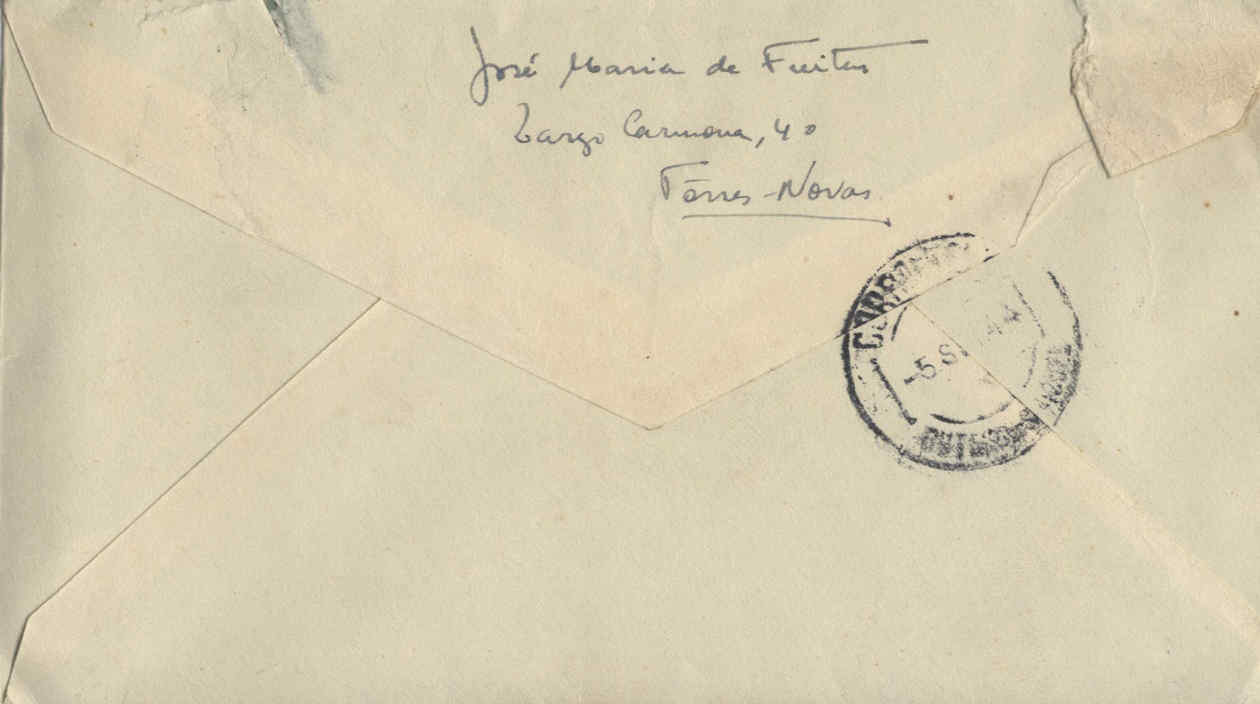 José Maria de Freitas
Largo Carmona, 40
Tôrres-Novas
CORREIOS
-5.S 44